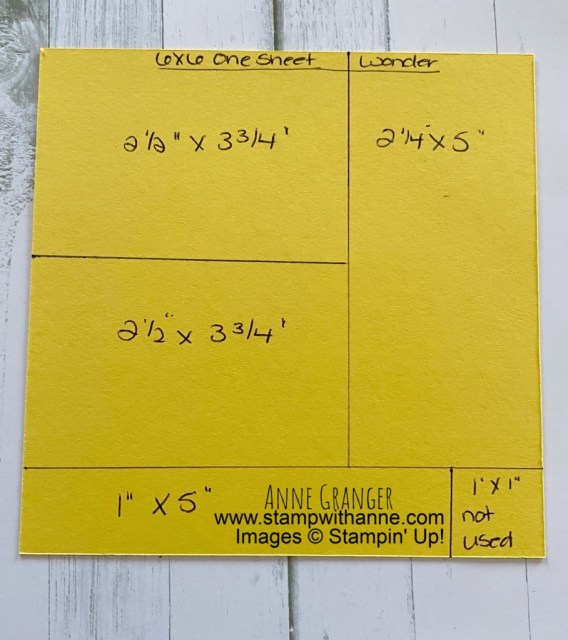 6x6 One Sheet Wonder
2 1/2" x 3 3/4'
2 1/4" x 5"
2 1/2" x 3 3/4'
1" x 5"
1' x 1"
not
used
ANNE GRANGER
www.stampwithanne.com
Images © Stampin' Up!